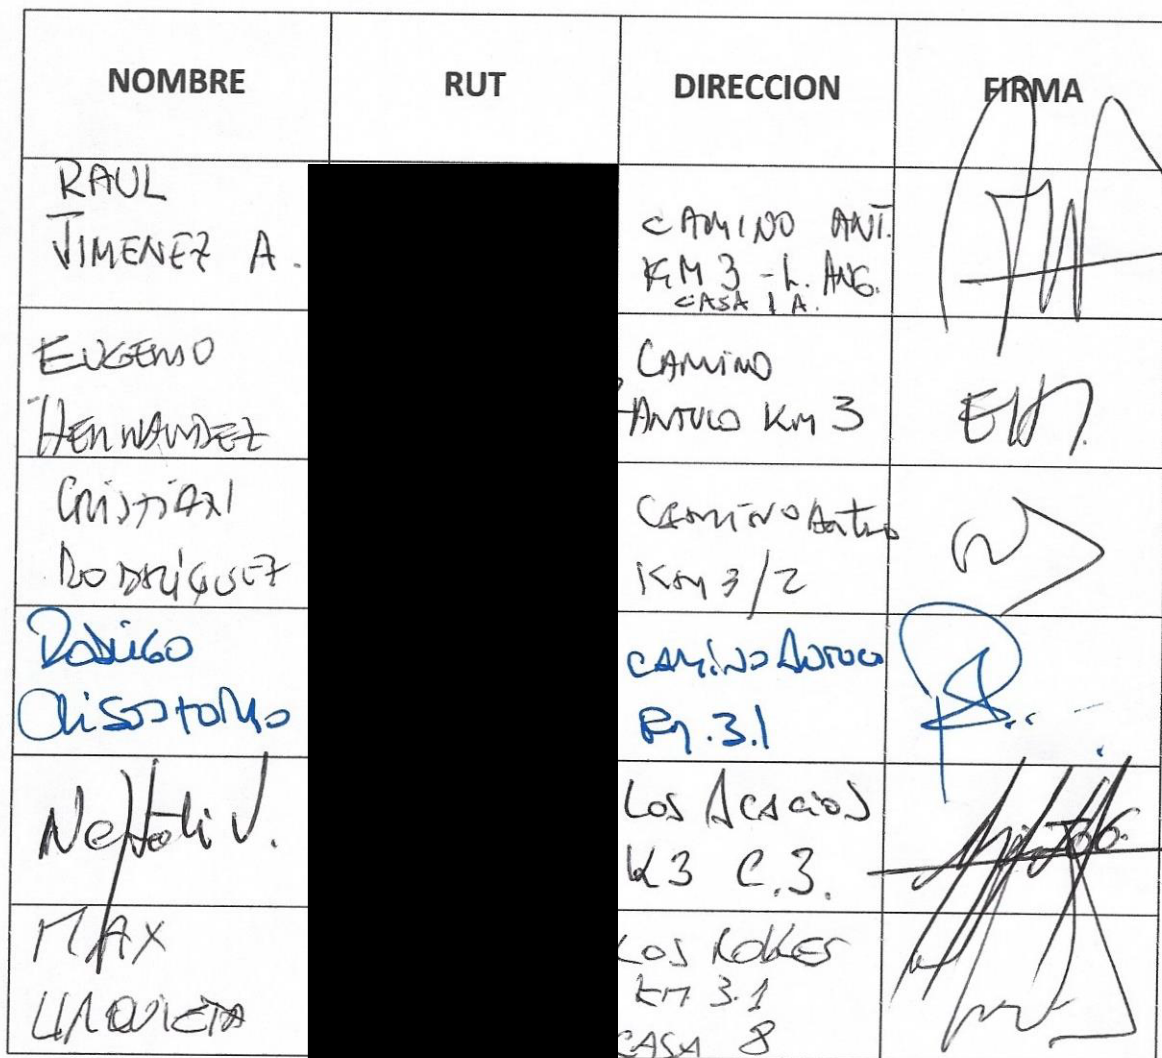 NOMBRE RUT DIRECCION FIRMA
RAUL
JIMENEZ A.
CAMINO ANT.
KM 3 - L. ANG.
CASA 1 A.
EUGENIO
HERNANDEZ
CAMINO
ANTUCO KM 3
EH
CRISTIAN
RODRÍGUEZ
CAMINO Antuco
KM 3/2
RODRIGO
CRISOSTOMO
CAMINO ANTUCO
KM.3.1
Neftali V.
Los Acacios
K3 C.3.
MAX
URRUTIA
LOS ROBLES
KM 3.1
CASA 8